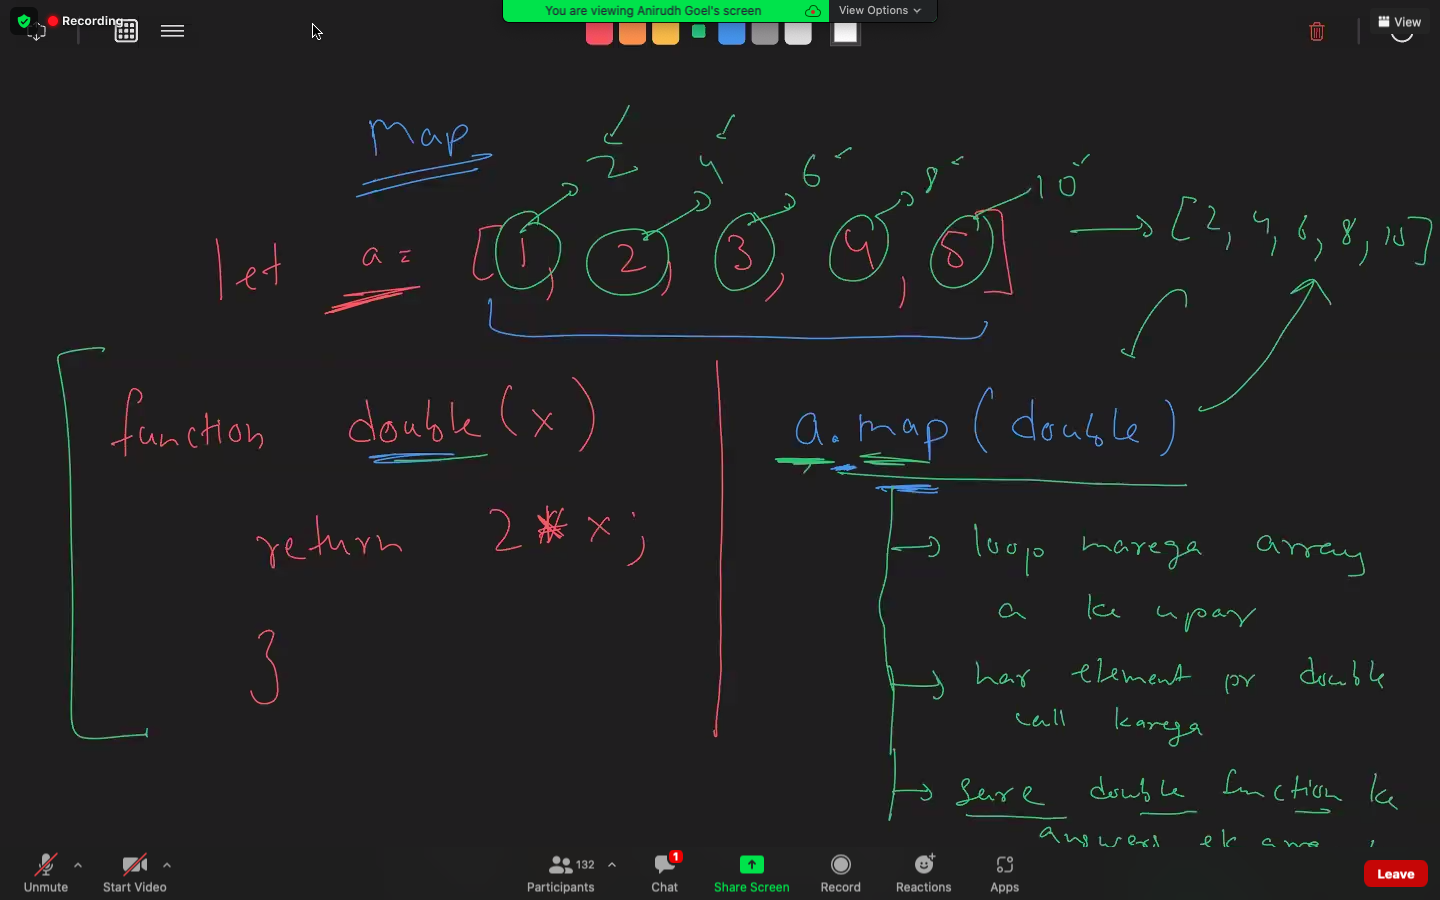 Recording
You are viewing Anirudh Goel's screen
View Options
View
Map
2 4 6 8 10
let a = [1, 2, 3, 4, 5]
[2, 4, 6, 8, 10]
function double(x)
return 2 * x;
}
a.map(double)
loop marega array
a ke upar
har element pr double
call karega
sare double function ke
answers ek
Unmute
Start Video
Participants
132
Chat
1
Share Screen
Record
Reactions
Apps
Leave